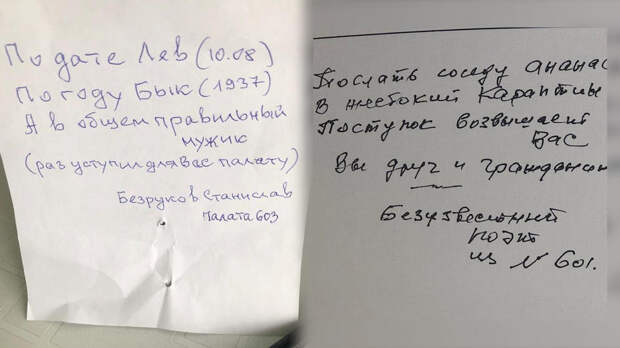 По дате Лев (10.08)
По году Бык (1937)
А в общем правильный
мужик
(раз уступил для вас палату)
Безруков Станислав
палата 603
Послать соседу ананас
В жестокий карантин
Поступок возвышает
Вас
Вы друг и гражданин
Безизвестный
поэт
из № 601.